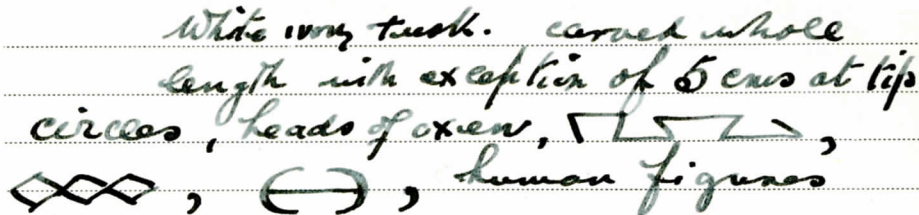 White ivory tusk. carved whole
length with exception of 5 cms at tip
circles, heads of oxen, ,
, , human figures